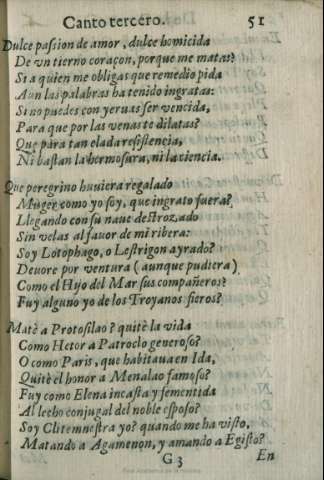 Canto tercero. 51
Dulce passion de amor, dulce homicida
De vn tierno coraçon, porque me matas?
Si a quien me obligas que remedio pida
Aun las palabras ha tenido ingratas:
Si no puedes con yeruas ser vencida,
Para que por las venas te dilatas?
Que para tan elada resistencia,
Ni bastan la hermosura, ni la ciencia.
Que peregrino huuiera regalado
Muger como yo soy, que ingrato fuera?
Llegando con su naue destrozado
Sin velas al fauor de mi ribera:
Soy Lotophago, o Lestrigon ayrado?
Deuore por ventura (aunque pudiera)
Como el Hijo del Mar sus compañeros?
Fuy alguno yo de los Troyanos fieros?
Matè a Protosilao? quitè la vida
Como Hetor a Patroclo generoso?
O como Paris, que habitaua en Ida,
Quitè el honor a Menalao famoso?
Fuy como Elena incasta y fementida
Al lecho conjugal del noble esposo?
Soy Clitemnestra yo? quando me ha visto,
Matando a Agamenon, y amando a Egisto?
G 3 En